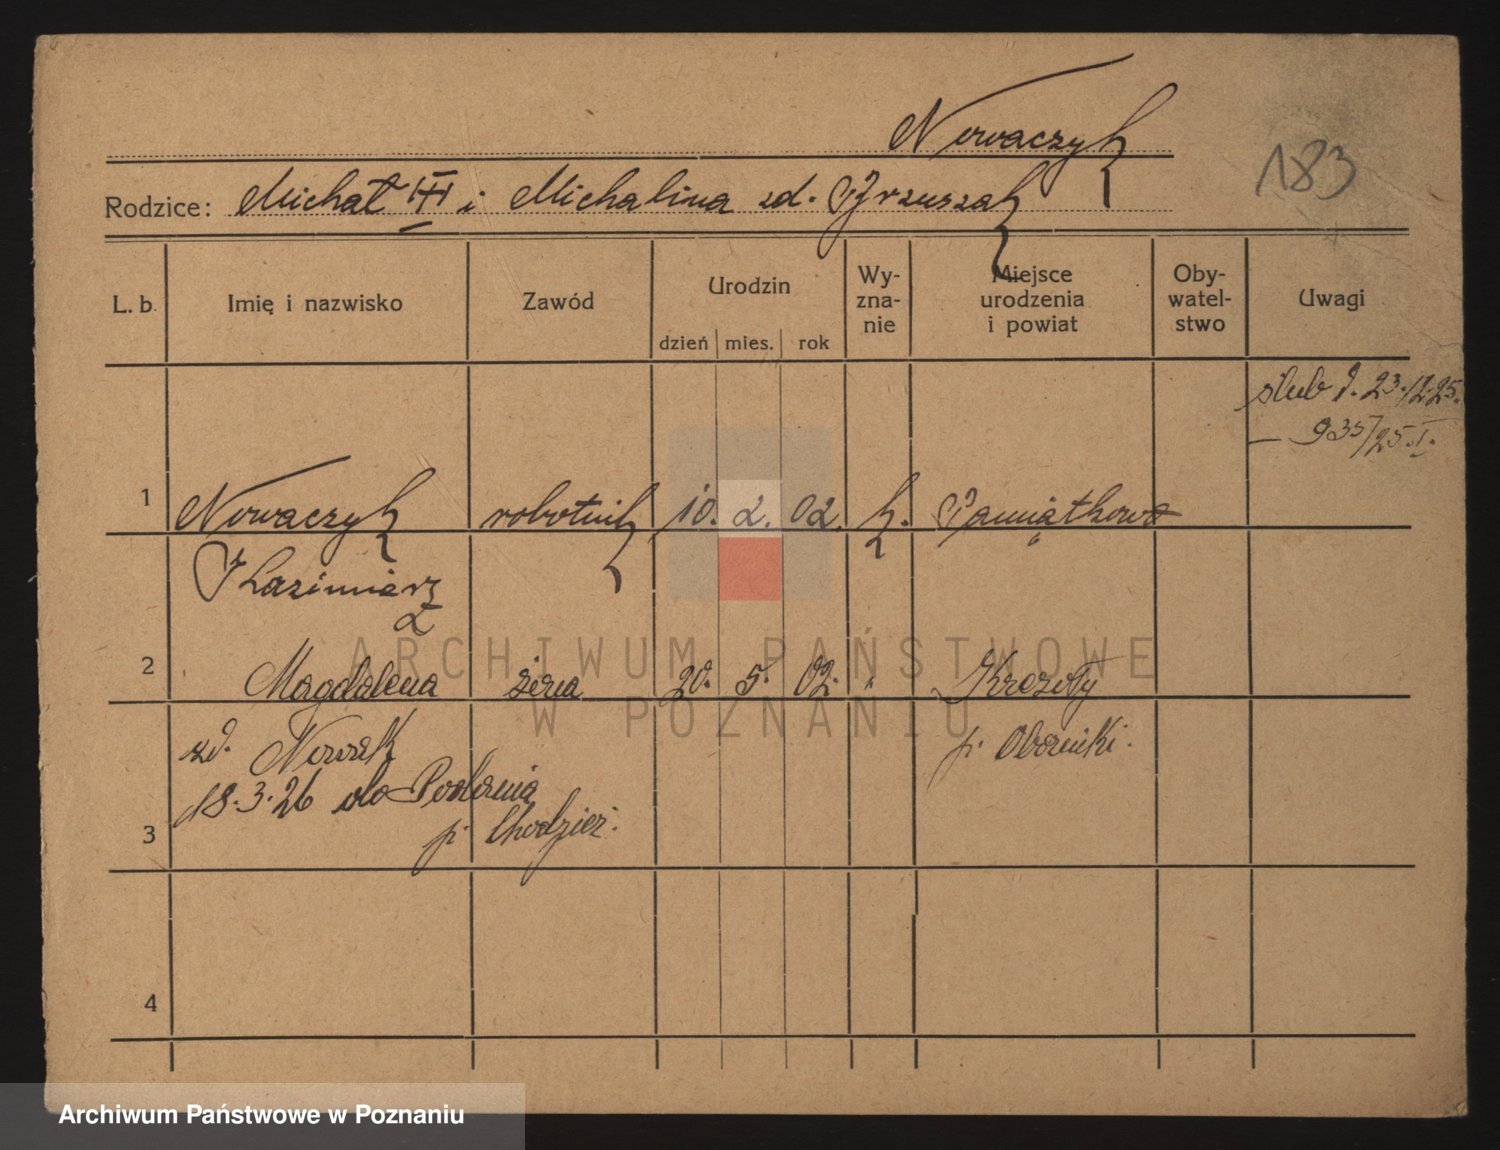 Nowaczyk
183
Rodzice: Michał III i Michalina zd.
L. b. Imię i nazwisko Zawód Urodzin dzień mies. rok Wy-zna-nie Miejsce urodzenia i powiat Oby-watel-stwo Uwagi
ślub 23.12.25.
935/25.I.
1 Nowaczyk robotnik 10. 2. 02. k. Pamiątkowo
Kazimierz
2 Magdalena żona 20. 5. 02. " 
zd. Nowak p. Oborniki.
18.3.26 do Podania
3 p. Chodzież.
4
ARCHIWUM PAŃSTWOWE
W POZNANIU
Archiwum Państwowe w Poznaniu